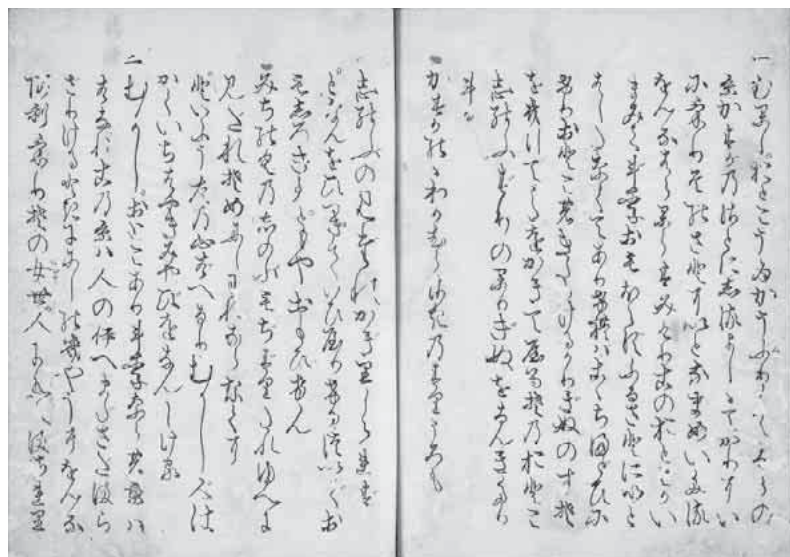 一むかし。おとこうゐかうぶりしてならの
京かすがの里にしるよしゝてかりにい
にけりそのさとにいとなまめいたる
をんなはらからすみけりこのおとこかい
まみてけりおもほえずふるさとにいと
はしたなくてありければこゝちまどひに
けりおとこのきたりけるかりぎぬのすそ
をきりてうたをかきてやるそのおとこ
しのぶずりのかりぎぬをなんきたり
ける
かすがのゝわかむらさきのすりごろも
しのぶの見だれかぎりしられず
となんをひつぎていひやりけるついでお
もしろきことゝもやおもひけん
みちのくのしのぶもぢずりたれゆへに
見だれそめにしわれならなくに
といふうたの心ばへなりむかし人は
かくいちはやきみやびをなんしける
二むかし。おとこありけりならの京は
はなれこの京は人の家まださだまら
ざりける時ににしの京にをんな
ありけりその女世人にはまされり